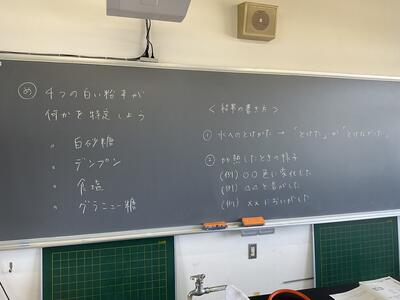 め 4つの白い粉末が
何かを特定しよう
〃 白砂糖
〃 デンプン
〃 食塩
〃 グラニュー糖
＜結果の書き方＞
① 水へのとけかた → 「とけた」か「とけなかった」
② 加熱したときの様子
(例) ○○色に変化した
(例) △△と音がした
(例) ××においがした